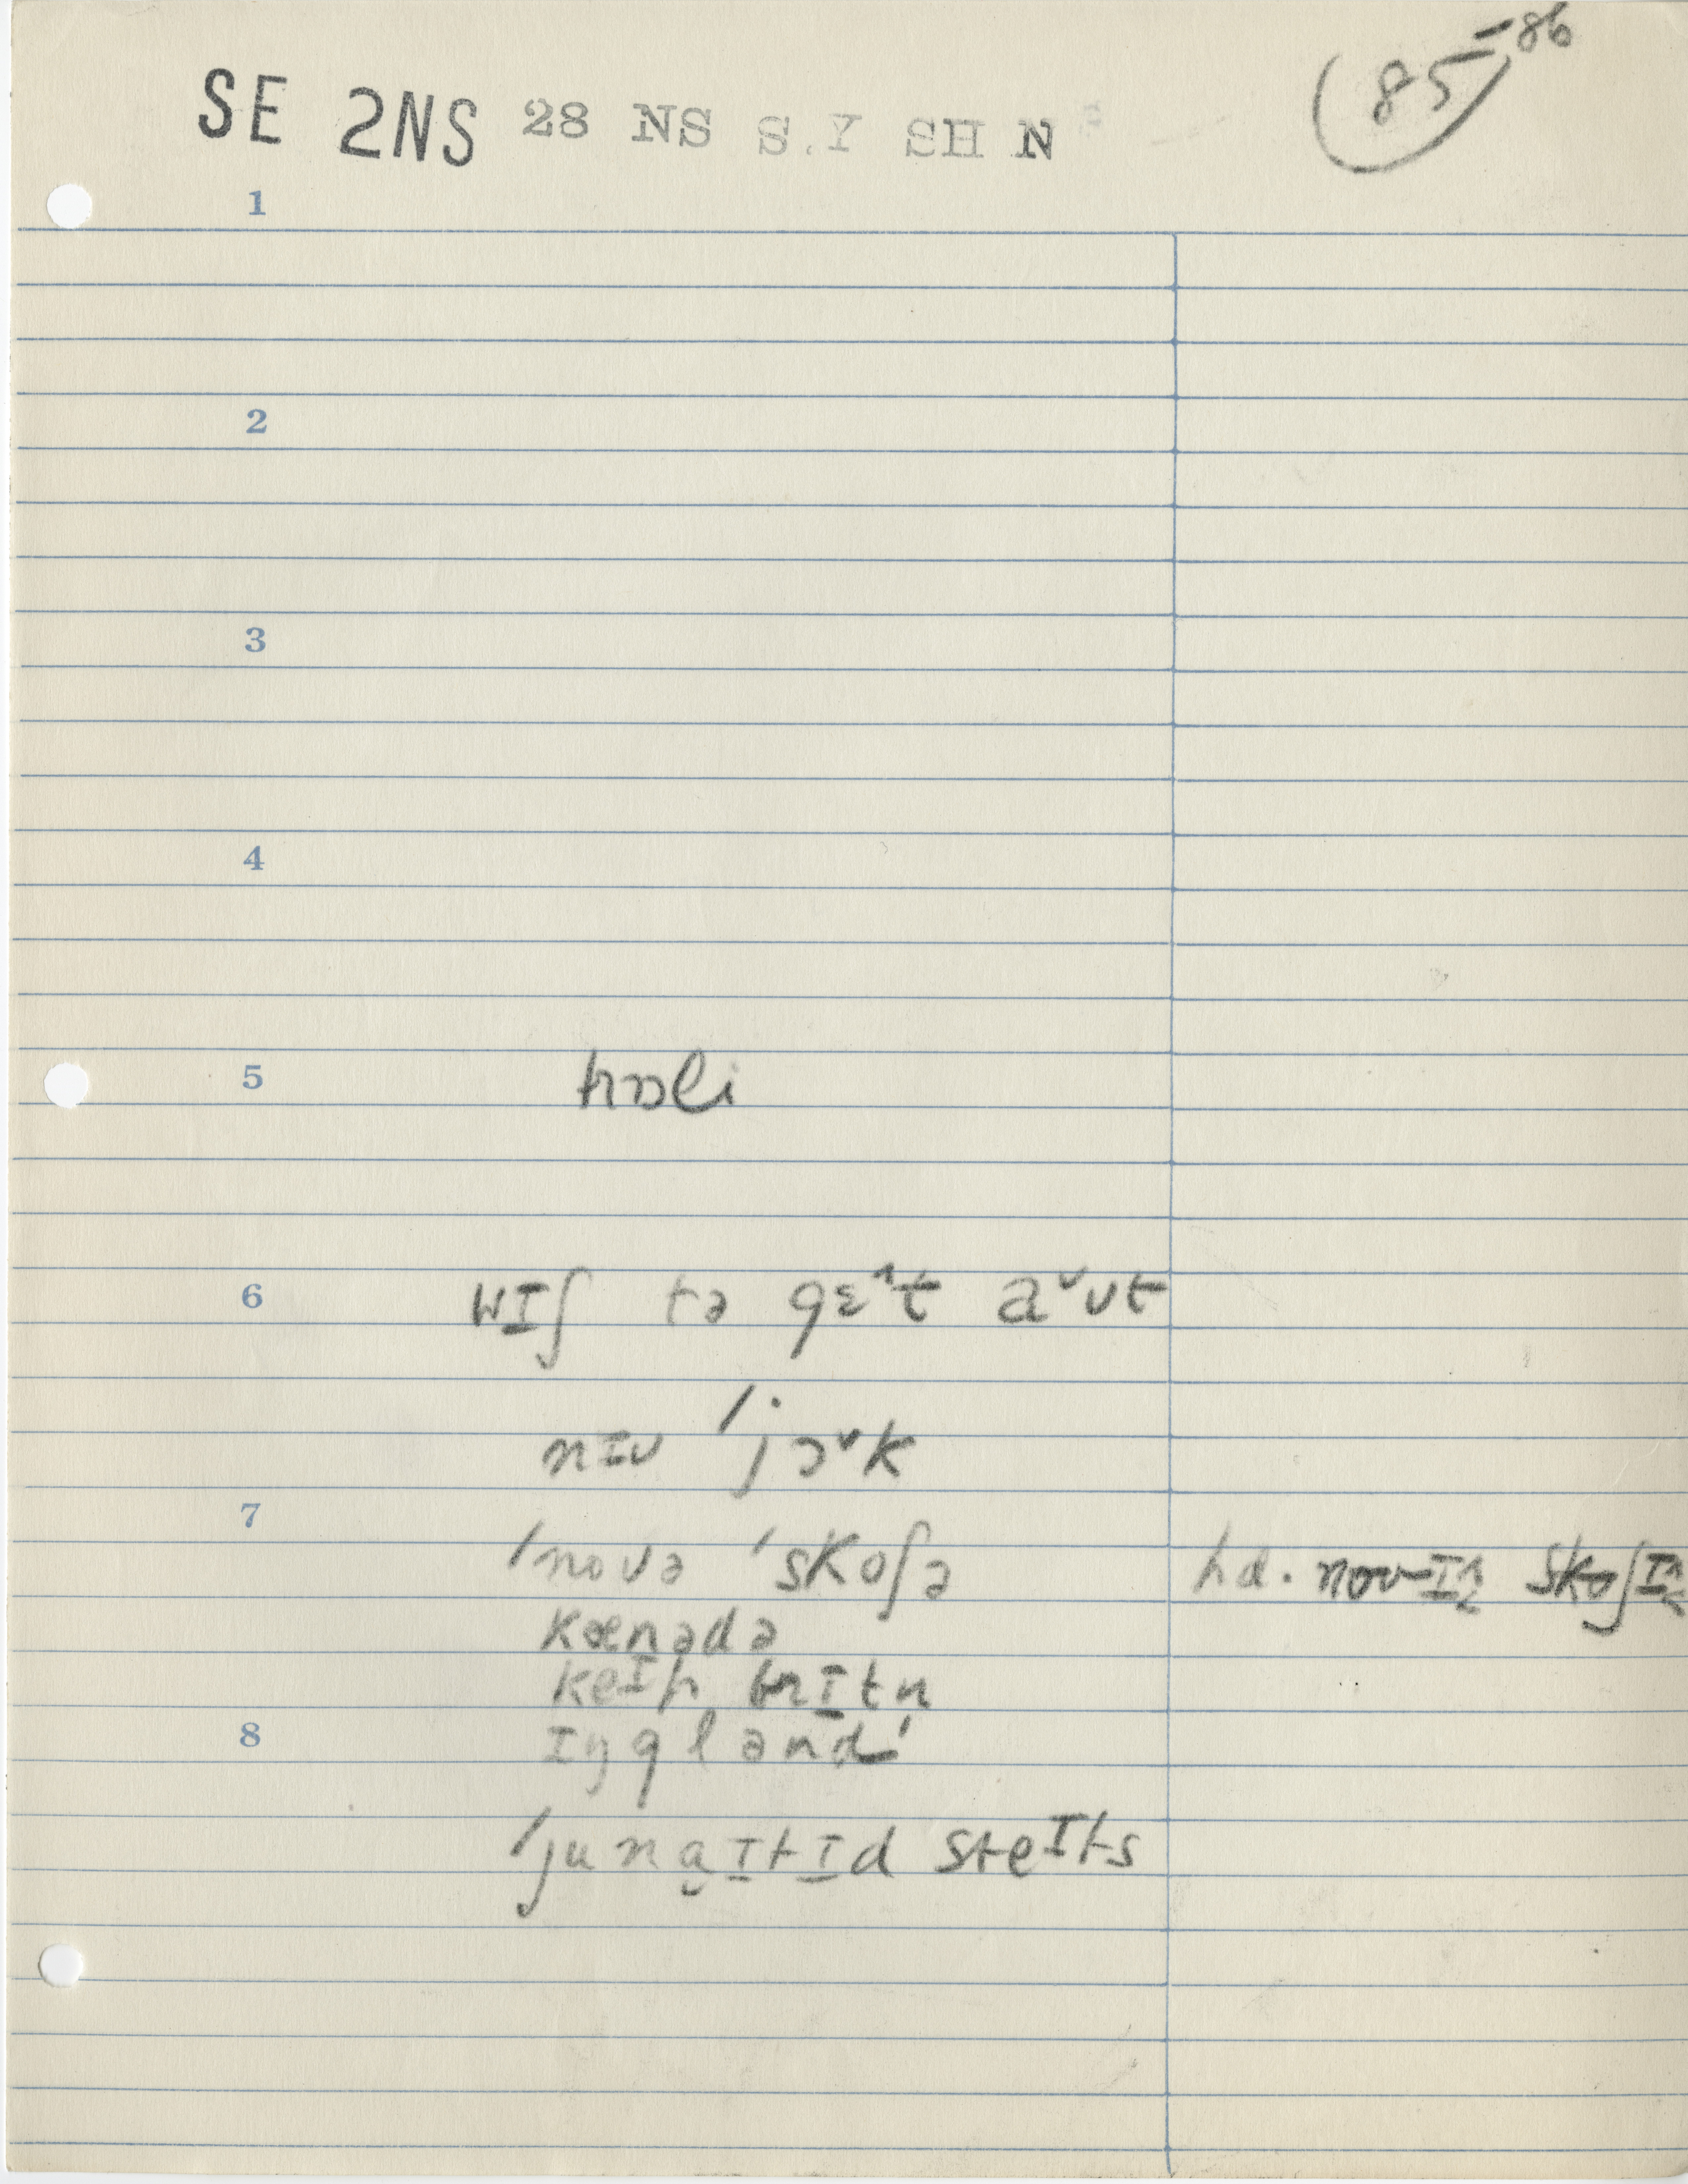 85-86
SE 2NS 28 NS S.Y SH N
1
2
3
4
5 hɒli
6 wɪʃ tə gɛ˄t a˅ʊt
nɪu 'jɔ˅k
7 'novə 'skoʃə hd. novɪ˄ skoʃɪ˄
kænədə
keɪp brɪtn
8 ɪŋglənd
'junaɪtɪd steɪts